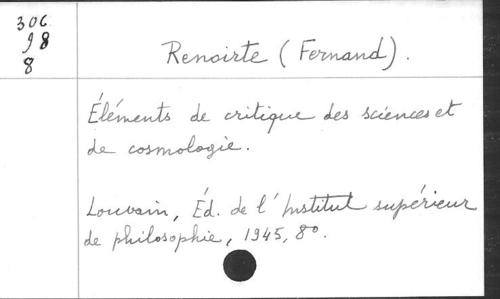 306
98
8
Renoirte (Fernand).
Éléments de critique des sciences et
de cosmologie.
Louvain, Éd. de l'Institut supérieur
de philosophie, 1945, 8º.